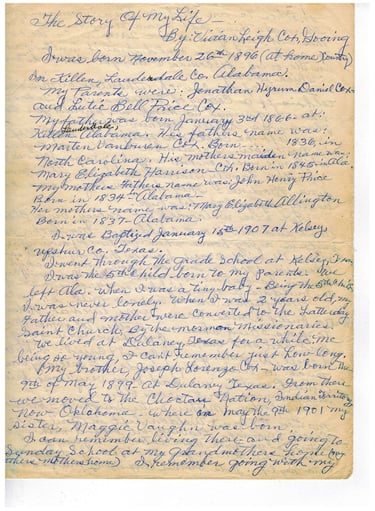 The Story Of My Life —
By: Vivian Leigh Cox, Gooing
I was born November 26th 1896 (at home Country)
In Killen, Lauderdale Co. Alabama.
My Parents were: Jonathan Hyrum Daniel Cox
and Lutie Bell Price Cox.
My father was born January 3rd 1866 at:
Lauderdale,
Killen Alabama. His fathers name was:
Marten Vanburen Cox. Born 1836, in
North Carolina. His mothers maiden name was:
Mary Elizabeth Harrison Cox. Born in 1845 in Ala.
My mothers fathers name was John Henry Price
Born in 1834 - Alabama.
Her mothers name was: Mary Elizabeth Allington
Born in 1837 - Alabama.
I was Baptized January 15th 1907 at Kelsey,
Upshur Co. Texas.
I went through the grade school at Kelsey, Texas
I was the 5th child born to my parents We
left Ala. when I was a tiny baby - Being the 5th child
I was never lonely. When I was 2 years old, my
father and mother were converted to the Latterday
Saint Church, By the Mormon Missionaries
We lived at Dulaney, Texas for a while me
being so young, I cant remember just how long.
My brother, Joseph Lorenzo Cox - was born the
of May 1899. At Dulaney Texas. From there
we moved to the Choctaw Nation, Indian Territory
now Oklahoma. where on May the 9th 1901 my
Sister, Maggie Vaughn was born.
I can remember living there and going to
Sunday School at my Grandmothers home (my
mothers home) I remember going with my